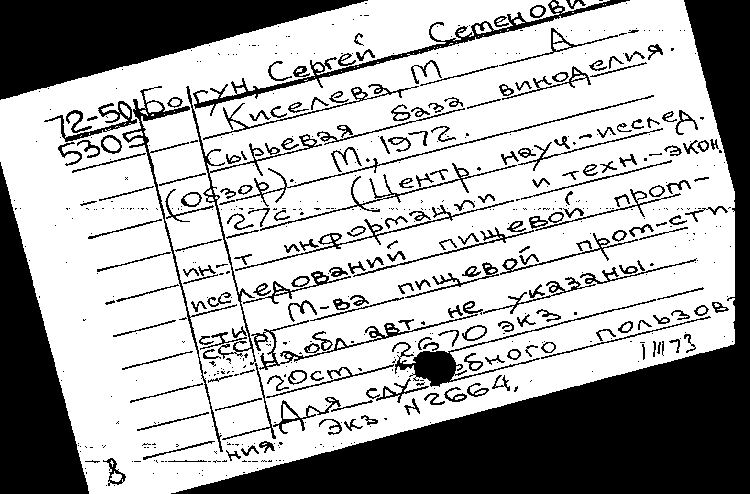 72-50к
5305
Богун, Сергей Семенови
Киселева, М А
Сырьевая база виноделия.
(Обзор). М., 1972.
27с. (Центр. науч.-исслед.
ин-т информации и техн.-экон.
исследований пищевой пром-
сти М-ва пищевой пром-сти
СССР).
На обл. авт. не указаны.
20ст. 2670 экз.
Для служебного пользова
ния. Экз. N2664.
1 III 73
В